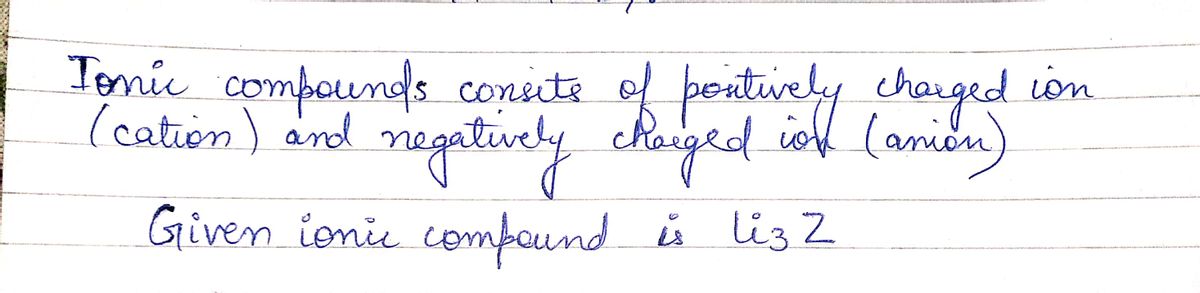 Ionic compounds consits of positively charged ion
(cation) and negatively charged ion (anion)
Given ionic compound is Li3 Z